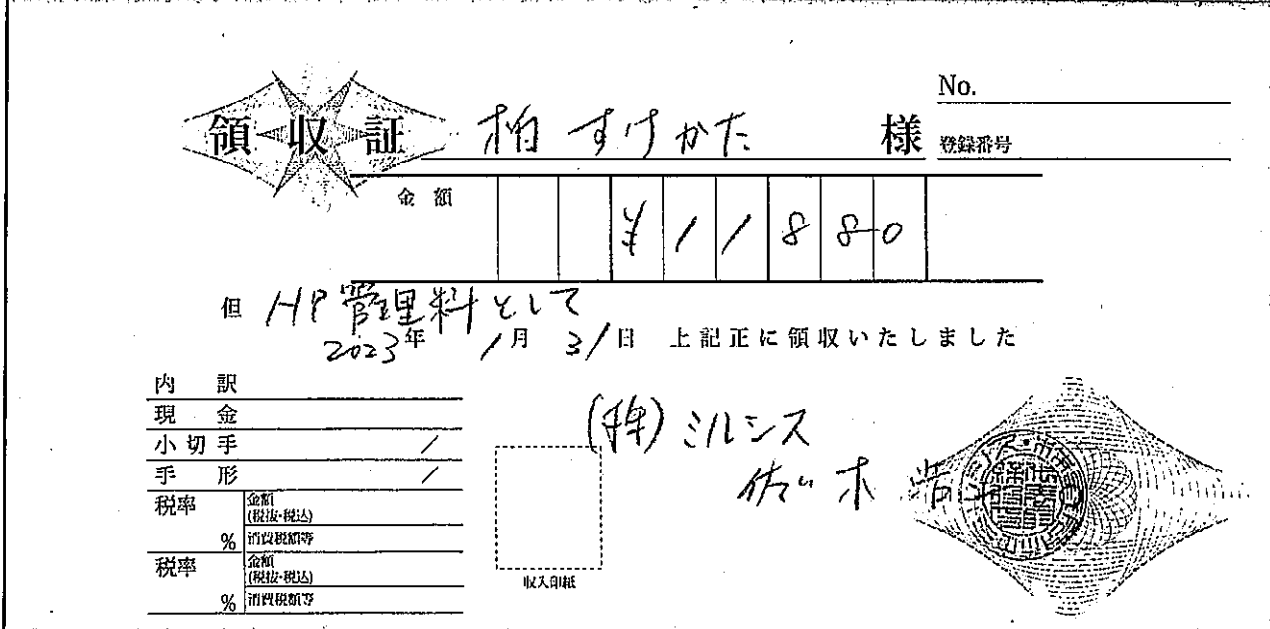 No.
領収証 柏 すけかた 様
登録番号
金額 ¥11880
但 HP管理料として
2023年 1月 31日 上記正に領収いたしました
内訳
現金
小切手 /
手形 /
税率 % 金額(税抜・税込)
消費税額等
税率 % 金額(税抜・税込)
消費税額等
収入印紙
(株)ミルシス
佐々木